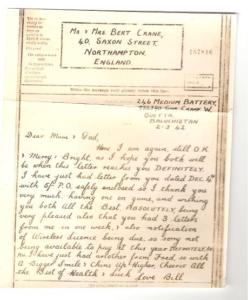 Mr & Mrs Bert Crane,
40, Saxon Street,
Northampton.
England.
246 Medium Battery,
Quetta
Baluchistan
2-3-42
Dear Mum & Dad,
Here I am again, still O.K
& Merry & Bright, as I hope you both will
be when this letter reaches you DEFINITELY.
I have just had letter from you dated Dec. 4th
with 5/- P.O. safely enclosed so I thank you
very much, having one on guns, and wishing
you both All the Best ABSOLUTELY, being
very pleased also that you had 3 letters
from me in one week, & also notification
of Wireless Licence being due, so sorry not
being available to pay it this year
I have just had another from Fred, so with
A Big Smile & Chins Up Higher, Cheerio All
the Best of Health & Luck Love Bill